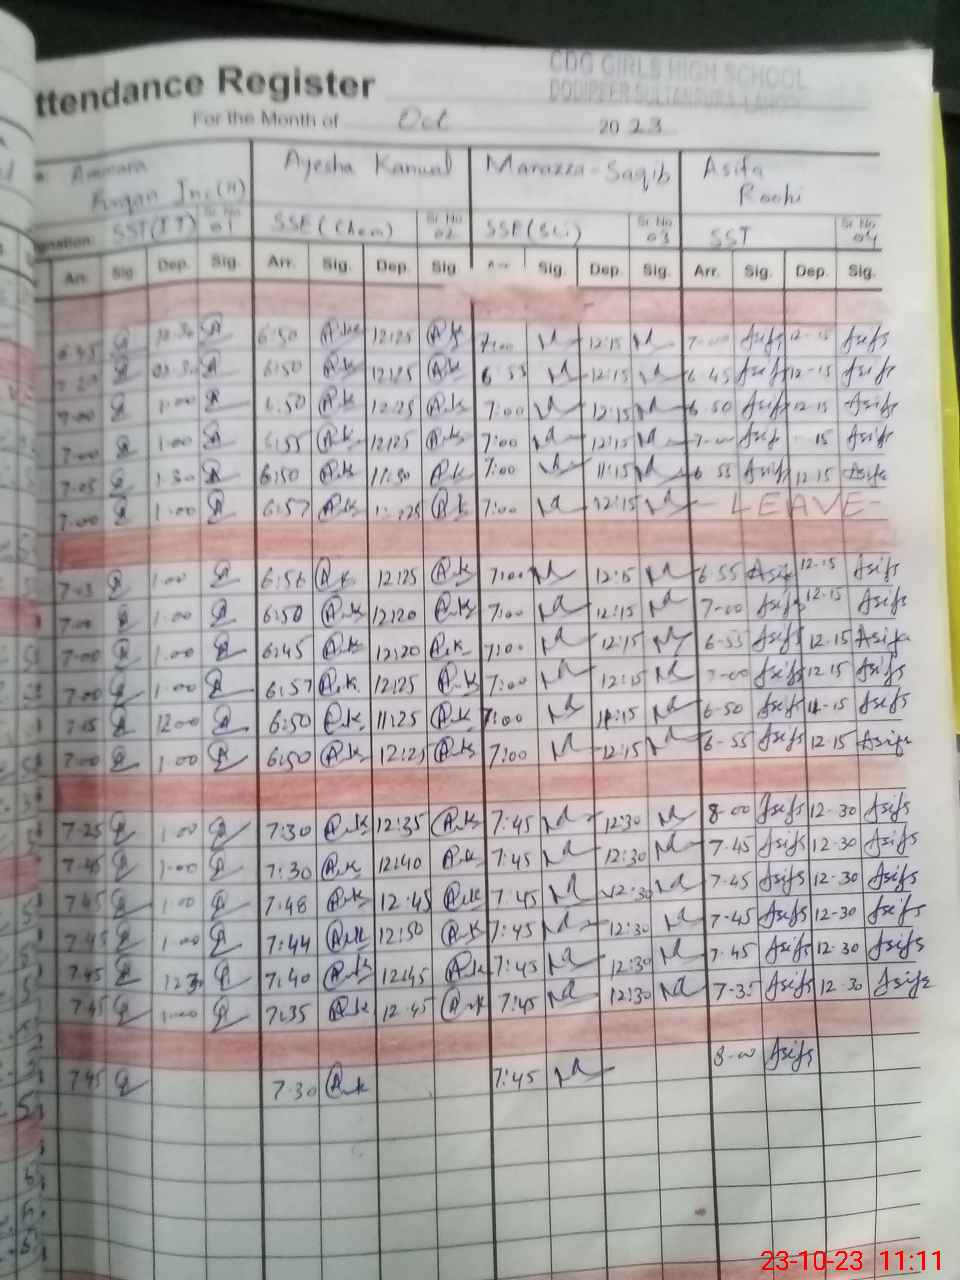 ttendance Register
CDG GIRLS HIGH SCHOOL
For the Month of Oct 2023
Ammara Ayesha Kanwal Marazza-Saqib Asifa
Furqan In.(H) Roohi
gnation: SST(IT) Sr No 01 SSE(Chem) Sr No 02 SSE(Sci) Sr No 03 SST Sr No 04
Arr. Sig. Dep. Sig. Arr. Sig. Dep. Sig. Sig. Dep. Sig. Arr. Sig. Dep. Sig.
6:50 A.k 12:25 A.k 7:00 12:15 7-00 Asifa 12-15 Asifa
6:50 A.k 12:25 A.k 6 55 12:15 6 45 Asifa 12-15 Asifa
7:00 1:00 6:50 A.k 12:25 A.k 7:00 12:15 6 50 Asifa 12 15 Asifa
7:00 1:00 6:55 A.k 12:25 A.k 7:00 12:15 7-00 Asifa 15 Asifa
7:05 1:30 6:50 A.k 11:50 A.k 7:00 11:15 6 55 Asifa 12.15 Asifa
7:00 1:00 6:57 A.k A.k 7:00 12:15 - LEAVE -
7:03 1:00 6:56 A.k 12:25 A.k 7:00 12:15 6 55 Asifa 12-15 Asifa
7:00 1:00 6:50 A.k 12:20 A.k 7:00 12:15 7-00 Asifa 12-15 Asifa
7:00 1:00 6:45 A.k 12:20 A.k 7:00 12:15 6-55 Asifa 12.15 Asifa
7:00 1:00 6:57 A.k 12:25 A.k 7:00 12:15 7-00 Asifa 12 15 Asifa
7:15 12:00 6:50 A.k 11:25 A.k 7:00 11:15 6-50 Asifa 11-15 Asifa
7:00 1:00 6:50 A.k 12:25 A.k 7:00 12:15 6-55 Asifa 12-15 Asifa
7-25 1:00 7:30 A.k 12:35 A.k 7:45 12:30 8-00 Asifa 12-30 Asifa
7-45 1:00 7:30 A.k 12:40 A.k 7:45 12:30 7-45 Asifa 12-30 Asifa
7:45 1:00 7:48 A.k 12:45 A.k 7:45 12:30 7-45 Asifa 12-30 Asifa
7:45 1:00 7:44 A.k 12:50 A.k 7:45 12:30 7-45 Asifa 12-30 Asifa
7:45 7:40 A.k 12:45 A.k 7:45 12:30 7-45 Asifa 12-30 Asifa
7:45 1:00 7:35 A.k 12:45 A.k 7:45 12:30 7-35 Asifa 12-30 Asifa
7:45 7:30 A.k 7:45 8-00 Asifa
23-10-23 11:11